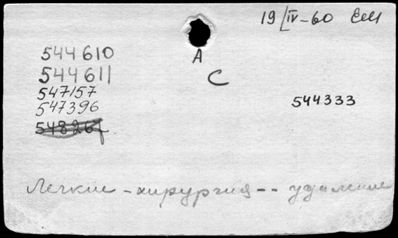 19/IV-60
544610
А
544611
С
547157
544333
547396
Легкие - хирургия -- удаление